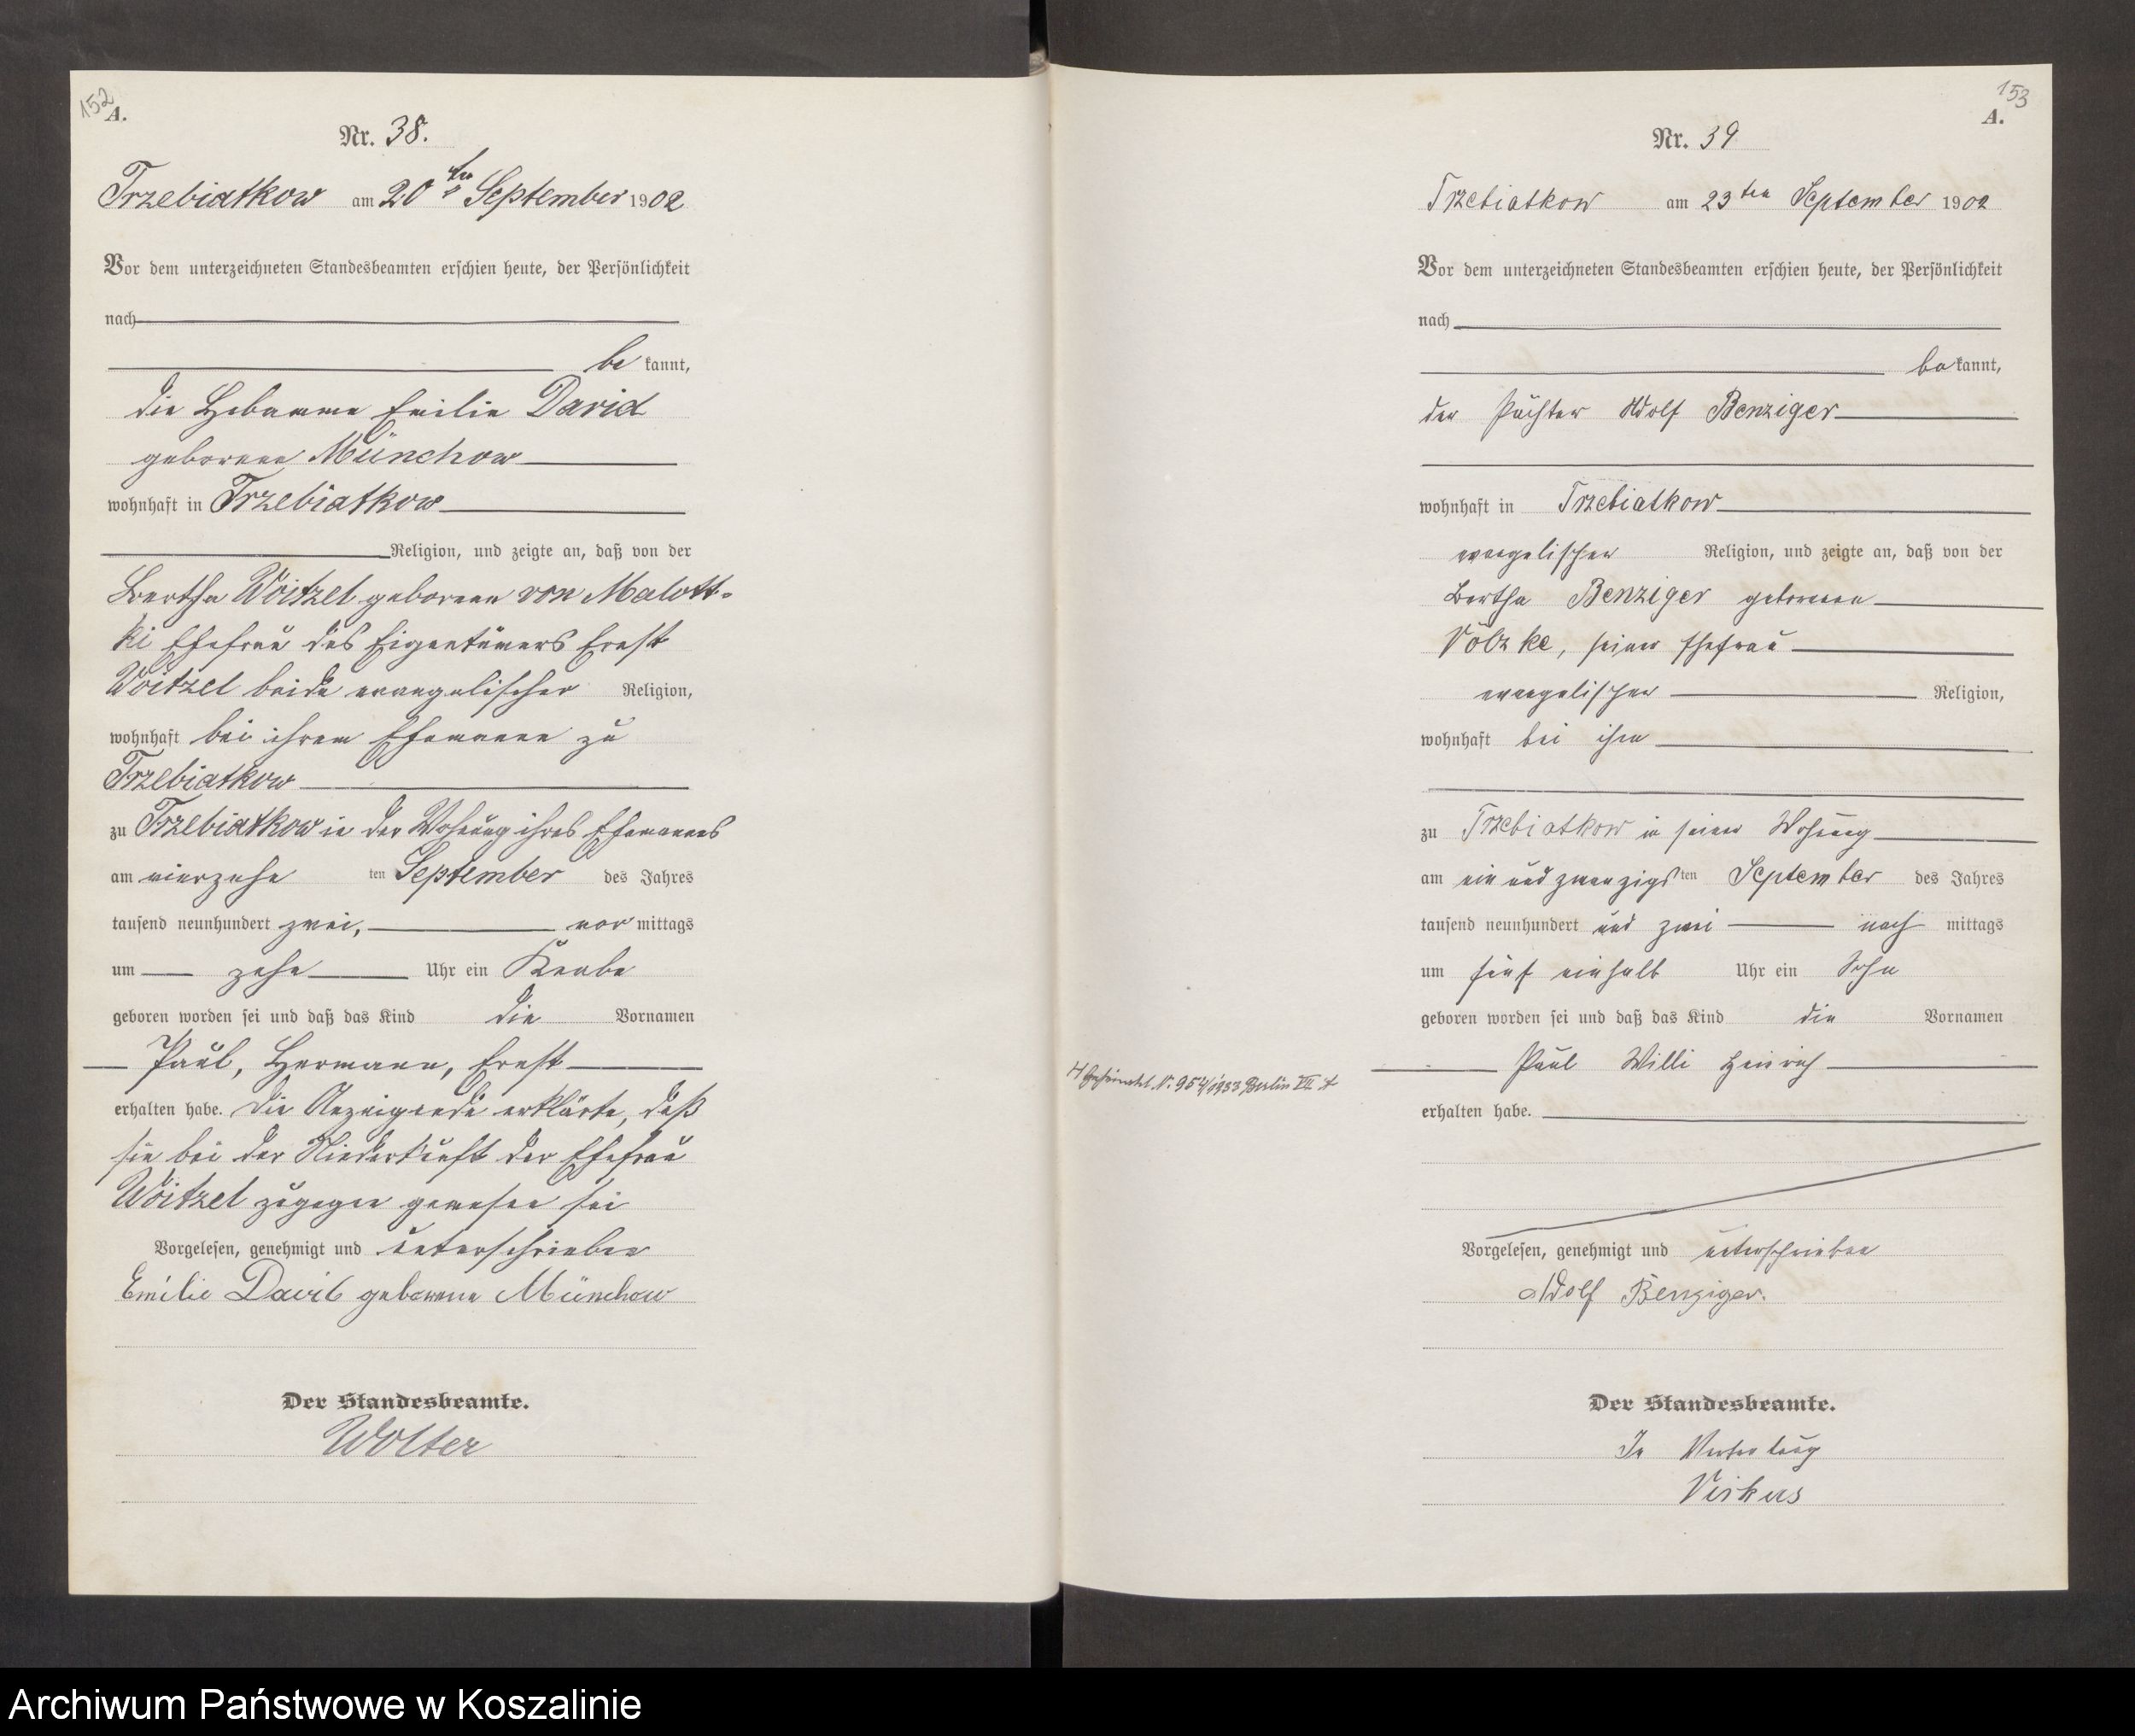 152
A.
Nr. 38.
Trzebiatkow am 20ten September 1902
Vor dem unterzeichneten Standesbeamten erschien heute, der Persönlichkeit
nach
be kannt,
die Hebamme Emilie David
geborene Münchow
wohnhaft in Trzebiatkow
Religion, und zeigte an, daß von der
Bertha Woitzel geborene von Malott-
ki Ehefrau des Eigentümers Ernst
Woitzel beide evangelischer Religion,
wohnhaft bei ihrem Ehemanne zu
Trzebiatkow
zu Trzebiatkow in der Wohnung ihres Ehemannes
am vierzehn ten September des Jahres
tausend neunhundert zwei, vor mittags
um zehn Uhr ein Knabe
geboren worden sei und daß das Kind die Vornamen
Paul, Hermann, Ernst
erhalten habe. Die Anzeigende erklärte, daß
sie bei der Niederkunft der Ehefrau
Woitzel zugegen gewesen sei
Vorgelesen, genehmigt und unterschrieben
Emilie David geborene Münchow
Der Standesbeamte.
Wolter
153
A.
Nr. 39
Trzebiatkow am 23ten September 1902
Vor dem unterzeichneten Standesbeamten erschien heute, der Persönlichkeit
nach
be kannt,
der Pächter Adolf Benziger
wohnhaft in Trzebiatkow
evangelischer Religion, und zeigte an, daß von der
Bertha Benziger geborenen
Völzke, seiner Ehefrau
evangelischer Religion,
wohnhaft bei ihm
zu Trzebiatkow in seiner Wohnung
am ein und zwanzigsten September des Jahres
tausend neunhundert und zwei nach mittags
um fünf einhalb Uhr ein Sohn
geboren worden sei und daß das Kind die Vornamen
H Geheiratet Nr. 954/1933 Berlin VII A
Paul Willi Heinrich
erhalten habe.
Vorgelesen, genehmigt und unterschrieben
Adolf Benziger.
Der Standesbeamte.
In Vertretung
Virkus
Archiwum Państwowe w Koszalinie